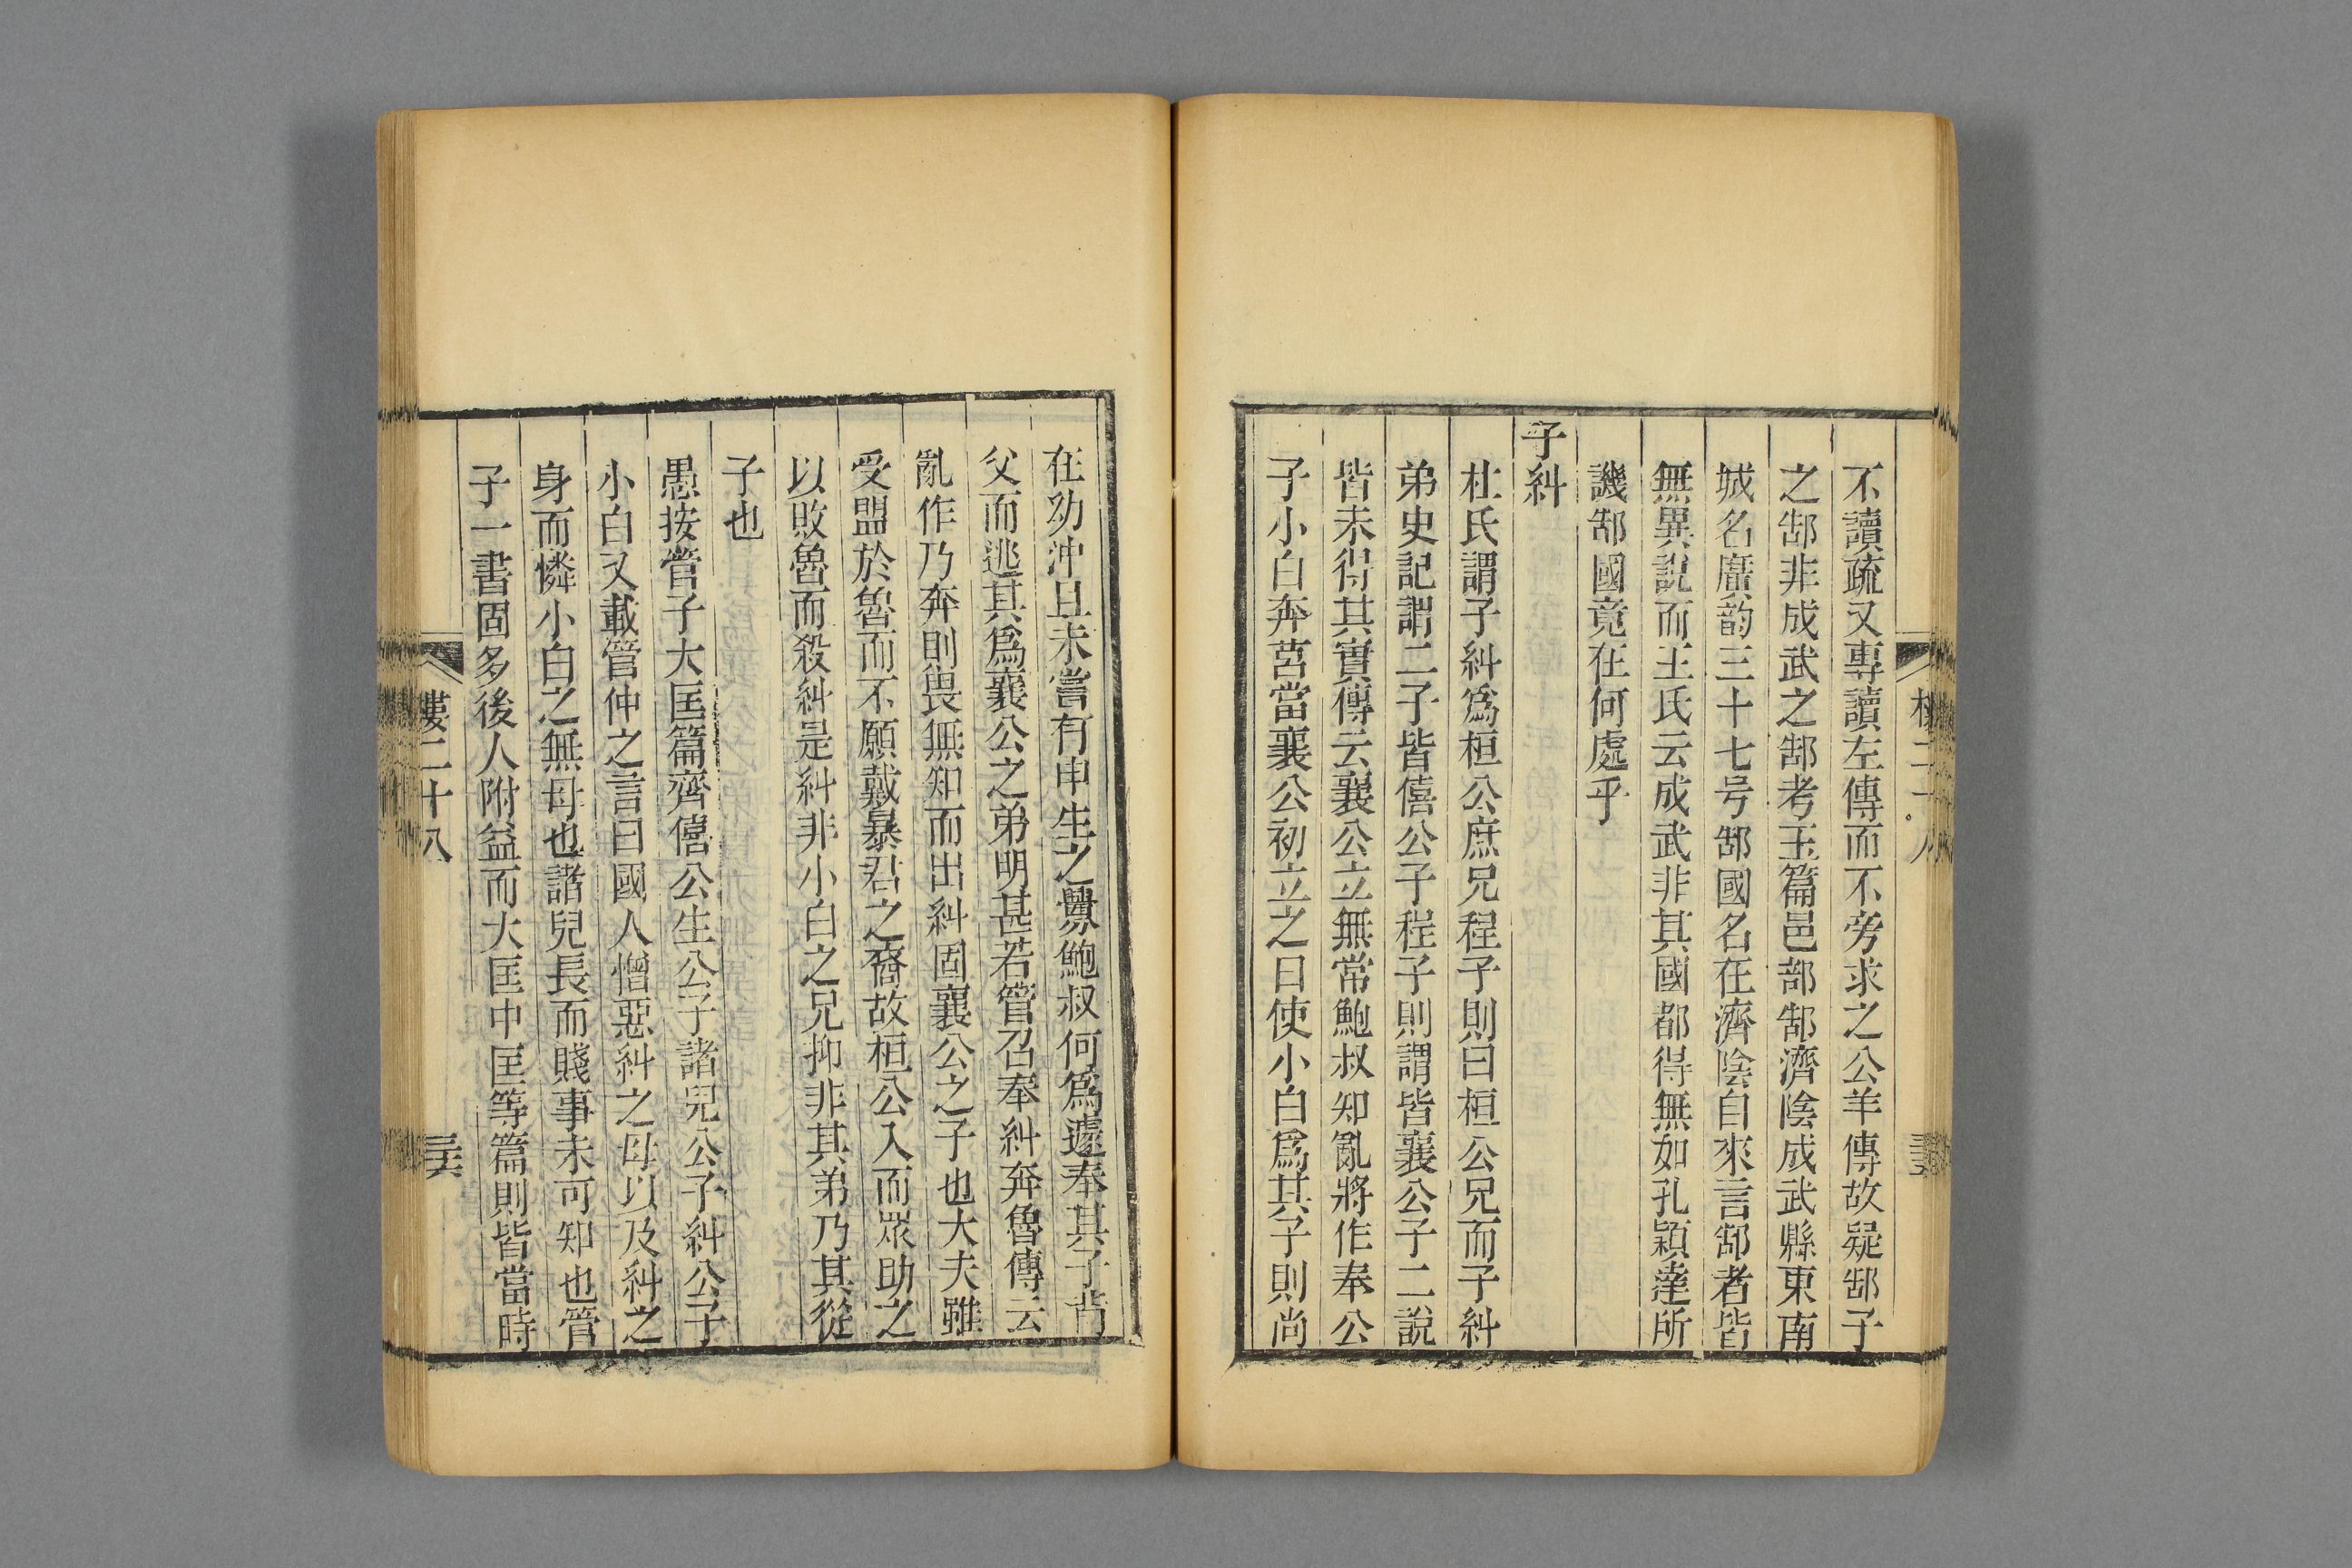 不讀疏又專讀左傳而不旁求之公羊傳故疑郜子
之郜非成武之郜考玉篇邑部郜濟陰成武縣東南
城名廣韵三十七号郜國名在濟陰自來言郜者皆
無異說而王氏云成武非其國都得無如孔穎達所
譏郜國竟在何處乎
子糾
杜氏謂子糾爲桓公庶兄程子則曰桓公兄而子糾
弟史記謂二子皆僖公子程子則謂皆襄公子二說
皆未得其實傳云襄公立無常鮑叔知亂將作奉公
子小白奔莒當襄公初立之日使小白爲其子則尚
在幼沖且未嘗有申生之釁鮑叔何爲遽奉其子背
父而逃其爲襄公之弟明甚若管召奉糾奔魯傳云
亂作乃奔則畏無知而出糾固襄公之子也大夫雖
受盟於魯而不願戴暴君之裔故桓公入而眾助之
以敗魯而殺糾是糾非小白之兄抑非其弟乃其從
子也
愚按管子大匡篇齊僖公生公子諸兒公子糾公子
小白又載管仲之言曰國人憎惡糾之母以及糾之
身而憐小白之無母也諸兒長而賤事未可知也管
子一書固多後人附益而大匡中匡等篇則皆當時
樓二十八